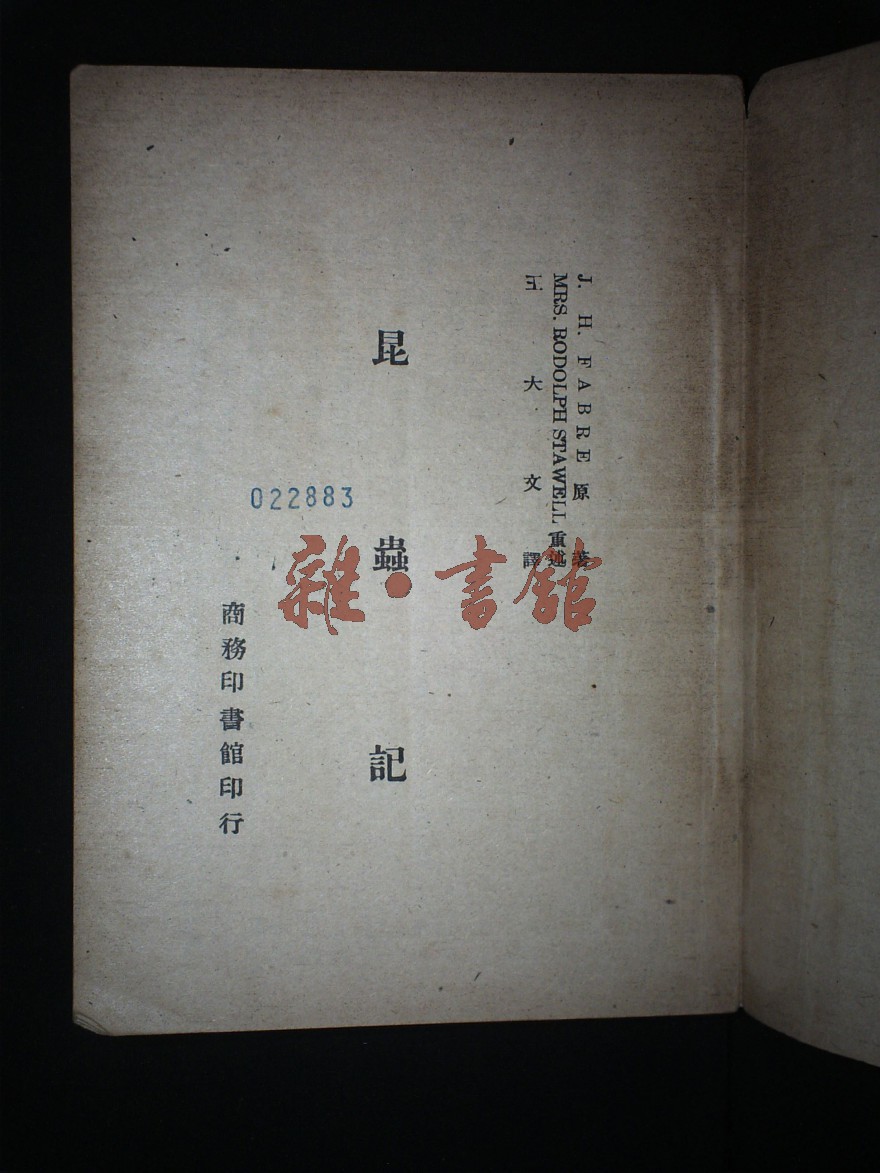 J. H. FABRE 原著
MRS. RODOLPH STAWELL 重述
王大文譯
昆蟲記
022883
商務印書館印行
雜·書館